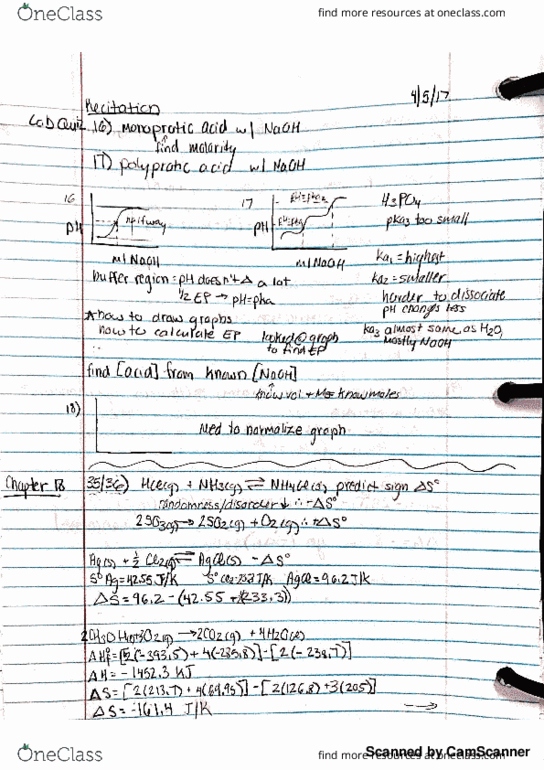 OneClass
find more resources at oneclass.com
4/5/17
Recitation
LoD Quiz 16) monoprotic acid w/ NaOH
find molarity
17) polyprotic acid w/ NaOH
16
17
pH
halfway
pH
pH=pka
pH=pka
H3PO4
pka3 too small
ml NaOH
ml NaOH
ka1 = highest
ka2 = smaller
harder to dissociate
pH changes less
ka3 almost same as H2O,
mostly NaOH
buffer region = pH doesn't Δ a lot
1/2 EP → pH=pka
*how to draw graphs
how to calculate EP
looked @ graph
to find EP
find [acid] from known [NaOH]
know vol + M = know moles
18)
Need to normalize graph
Chapter 18
35/36) HCl(g) + NH3(g) ⇌ NH4Cl(s) predict sign ΔS°
randomness/disorder ↓ ∴ -ΔS°
2SO3(g) → 2SO2(g) + O2(g) ∴ +ΔS°
Ag(s) + 1/2 Cl2(g) ⇌ AgCl(s) -ΔS°
S° Ag = 42.55 J/K S° Cl2 J/K AgCl = 96.2 J/K
ΔS = 96.2 - (42.55 +
2CH3OH + 3O2(g) → 2CO2(g) + 4H2O
ΔHf° = [2(-393.5) + 4(-285.8)] - [2(-238.7)]
ΔH = -1452.3 KJ
ΔS = [2(213.7) + 4(69.95)] - [2(126.8) + 3(205)]
ΔS = -161.4 J/K
→
OneClass
find more resources at oneclass.com
Scanned by CamScanner